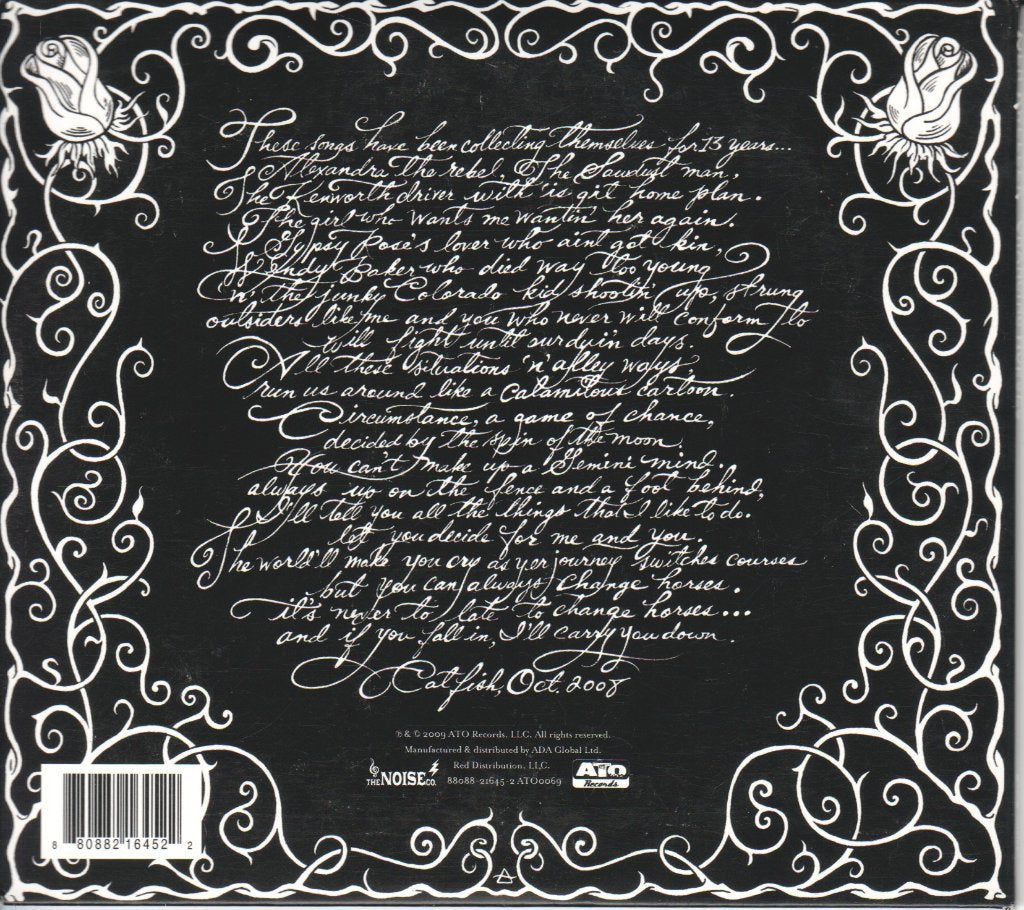 These songs have been collecting themselves for 13 years...
Alexandra the rebel, The Sawdust man,
The Kenworth driver with 'is git home plan.
The girl who wants me wantin' her again.
A Gypsy Rose's lover who aint got kin,
Wendy Baker who died way too young
'n' the junky Colorado kid shootin' up, strung
outsiders like me and you who never will conform to
will fight until our dyin' days.
All these situations 'n' alley ways,
run us around like a calamitous cartoon.
Circumstance, a game of chance,
decided by the spin of the moon.
You can't make up a Gemini mind.
always up on the fence and a foot behind,
I'll tell you all the things that I like to do.
let you decide for me and you.
The world'll make you cry as yer journey switches courses
but you can always change horses.
it's never to late to change horses...
and if you fall in, I'll carry you down.
Catfish, Oct. 2008
℗ & © 2009 ATO Records, LLC. All rights reserved.
Manufactured & distributed by ADA Global Ltd.
Red Distribution, LLC.
THE NOISE CO. 88088-21645-2 ATO0069 ATO Records
8 80882 16452 2